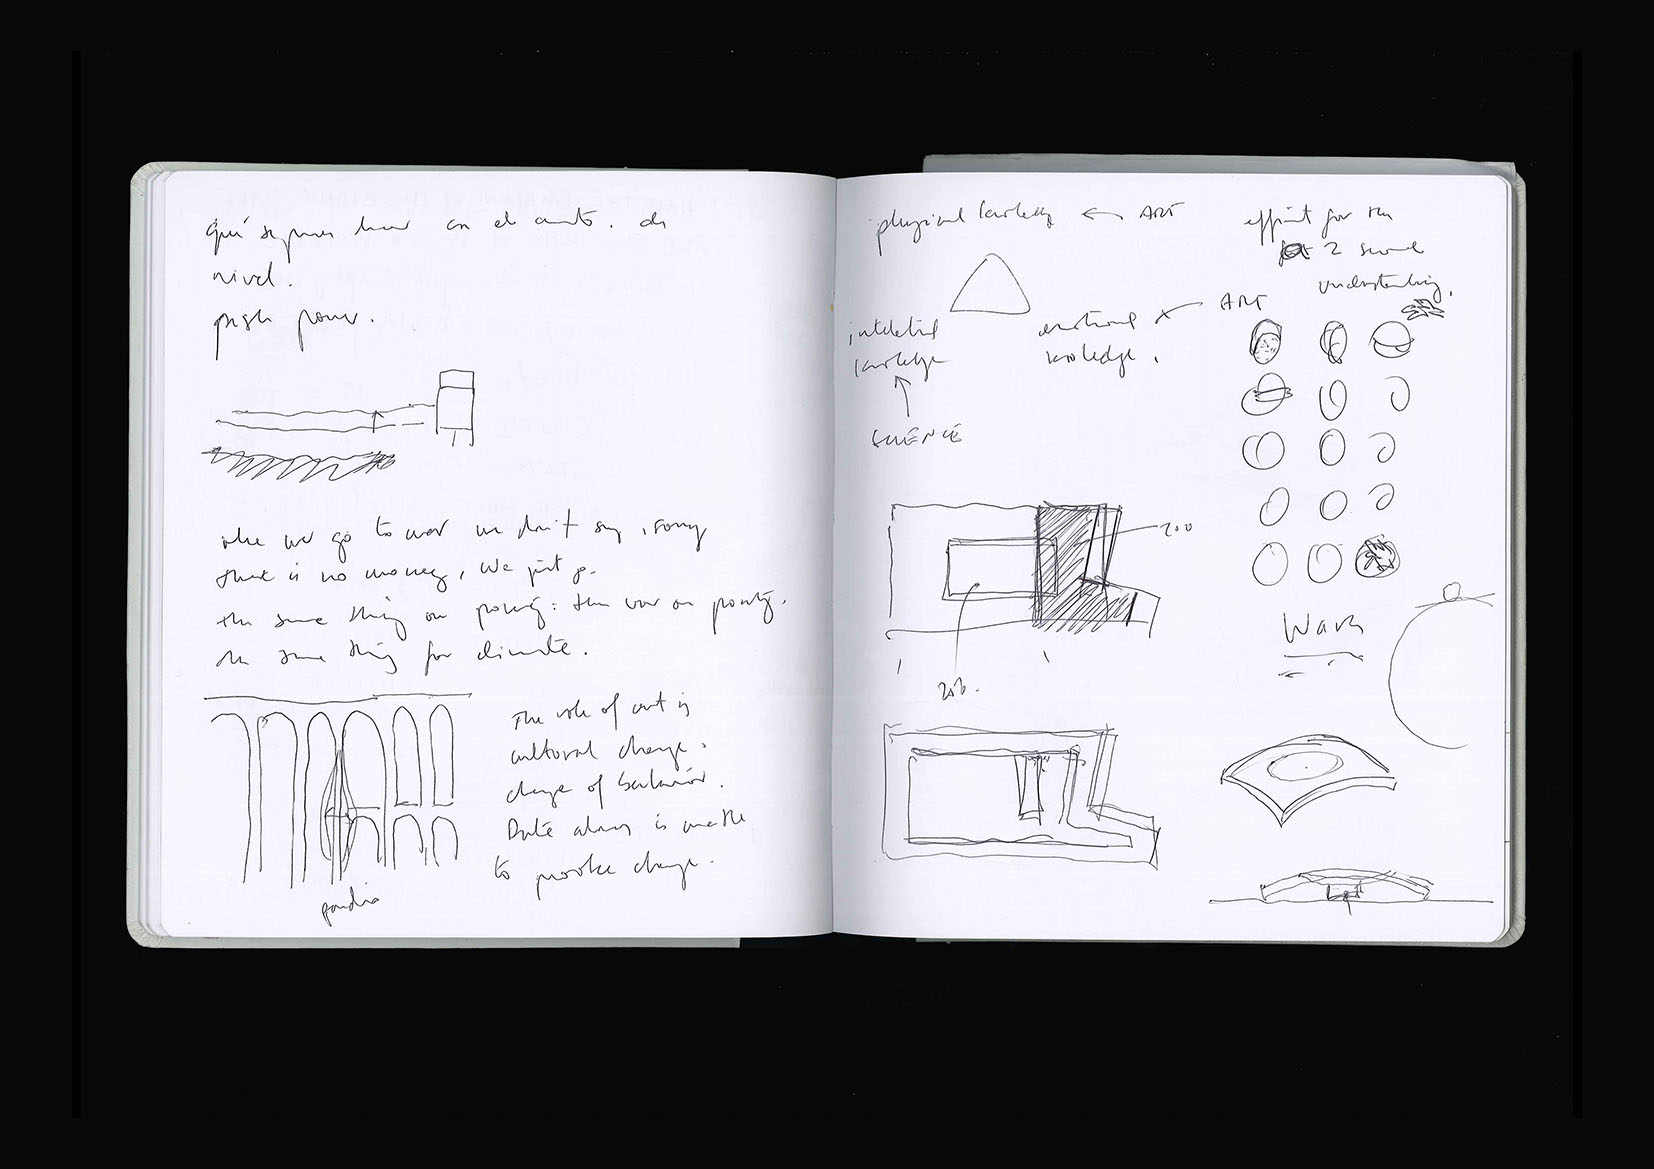 qué se puede hacer con el cuarto. de
nivel.
push power.
when we go to war we don't say, sorry
there is no money, we just go.
the same thing on poverty: the war on poverty.
the same thing for climate.
The role of art is
cultural change.
change of behavior.
Data alone is unable
to provoke change.
physical knowledge ← ART
intellectual
knowledge
SCIENCE
emotional
knowledge.
ART
effort for the
2 second
understanding.
200
200.
Wars
light